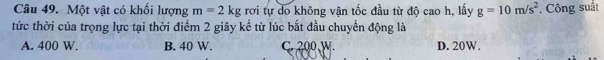 Câu 49. Một vật có khối lượng m = 2 kg rơi tự do không vận tốc đầu từ độ cao h, lấy g = 10 m/s². Công suất
tức thời của trọng lực tại thời điểm 2 giây kể từ lúc bắt đầu chuyển động là
A. 400 W. B. 40 W. C. 200 W. D. 20W.